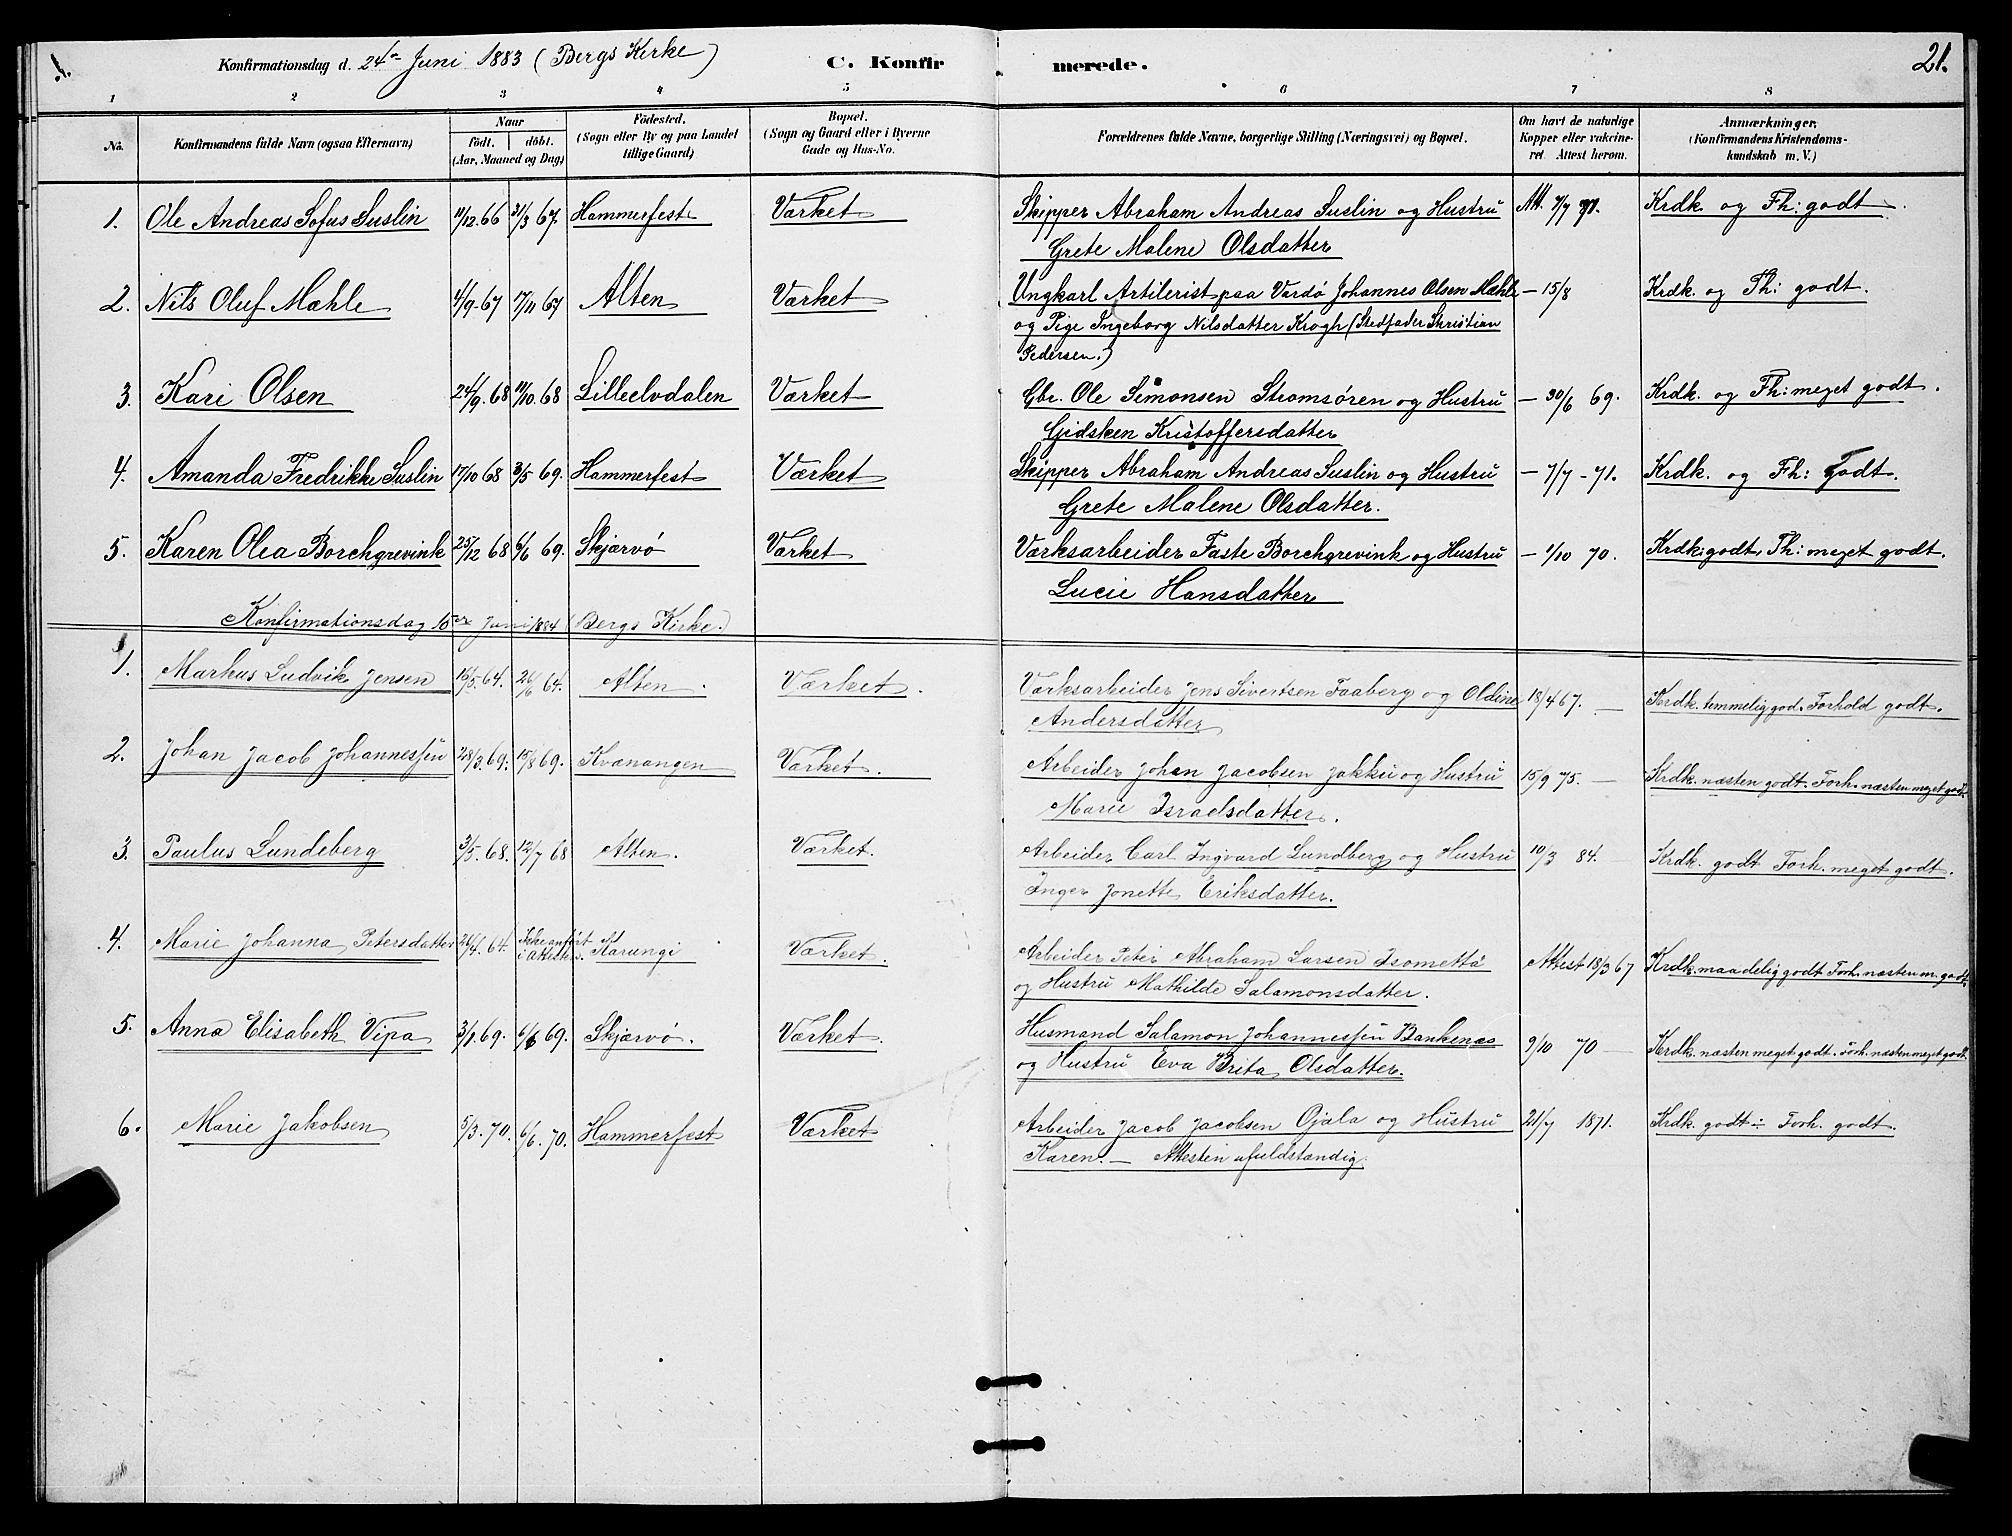 1. Konfirmationsdag d. 24de Juni 1883 (Bergs Kirke) C. Konfirmerede. 21.
1 2 3 4 5 6 7 8
No. Konfirmandens fulde Navn (ogsaa Efternavn) Naar födt. döbt. (Aar, Maaned og Dag) Födested. (Sogn eller By og paa Landet tillige Gaard) Bopæl. (Sogn og Gaard eller i Byerne Gade og Hus-No. Forældrenes fulde Navne, borgerlige Stilling (Næringsvei) og Bopæl. Om havt de naturlige Kopper eller vakcineret Attest herom. Anmærkninger, (Konfirmandens Kristendomskundskab m. V.)
1. Ole Andreas Sofus Suslin 11/12.66 31/3 67. Hammerfest Værket Skipper Abraham Andreas Suslin og Hustru Att. 7/7 71. Krdk. og Fh: godt.
Grete Malene Olsdatter
2. Nils Oluf Mæhle 4/9-67 17/11 67 Alten Værket Ungkarl Artilerist paa Vardø Johannes Olsen Mæhle — 15/8 Krdk. og Fh: godt.
og Pige Ingeborg Nilsdatter Krogh (Stedfader Christian
Pedersen.)
3. Kari Olsen 24/9.68 11/10.68 Lilleelvdalen Værket Gbr. Ole Simonsen Strømsøren og Hustru — 30/6 69. Krdk. og Fh: meget godt.
Gidsken Kristoffersdatter
4. Amanda Fredrikke Suslin 17/10 68 3/5 69. Hammerfest Værket Skipper Abraham Andreas Suslin og Hustru — 7/7 - 71. Krdk. og Fh: Godt.
Grete Malene Olsdatter.
5. Karen Olea Borchgrevink 25/12 68 6/6 69. Skjærvø Værket Værksarbeider Faste Borchgrevink og Hustru — 1/10 70. Krdk: godt, Fh: meget godt.
Lucie Hansdatter
Konfirmationsdag 15de Juni 1884 (Bergs Kirke.)
1. Markus Ludvik Jensen 15/5.64. 26/6 64. Alten. Værket. Værksarbeider Jens Sivertsen Faaberg og Oldine 18/4 67. — Krdk. temmelig god. Forhold godt.
Andersdatter
2. Johan Jacob Johannessen 28/3.69. 15/8 69. Kvænangen Værket. Arbeider Johan Jacobsen Jakku og Hustru 15/9 75. — Krdk. næsten godt. Forh. næsten meget godt.
Marie Israelsdatter.
3. Paulus Lundeberg 3/5.68. 12/7 68 Alten. Værket. Arbeider Carl Ingvard Lundberg og Hustru 10/3 84. — Krdk. godt Forh. meget godt.
Inger Jonette Eriksdatter.
4. Marie Johanna Petersdatter 26/4.64. Ikke anført i Attesten. Karungi Værket. Arbeider Peter Abraham Larsen Isometta Attest 18/3 67 Krdk. maadelig godt Forh. næsten m. godt.
og Hustru Mathilde Salamonsdatter.
5. Anna Elisabeth Vipa 3/1.69. 6/6 69. Skjærvø. Værket. Husmand Salamon Johannessen Bankenæs 9/10 70 — Krdk. næsten meget godt. Forh. næsten meget godt.
og Hustru Eva Brita Olsdatter.
6. Marie Jakobsen 5/3.70. 6/6.70. Hammerfest Værket Arbeider Jacob Jacobsen Ojala og Hustru 21/7 1871. Krdk. godt ÷ Forh. godt.
Karen. — Attesten ufuldstændig.